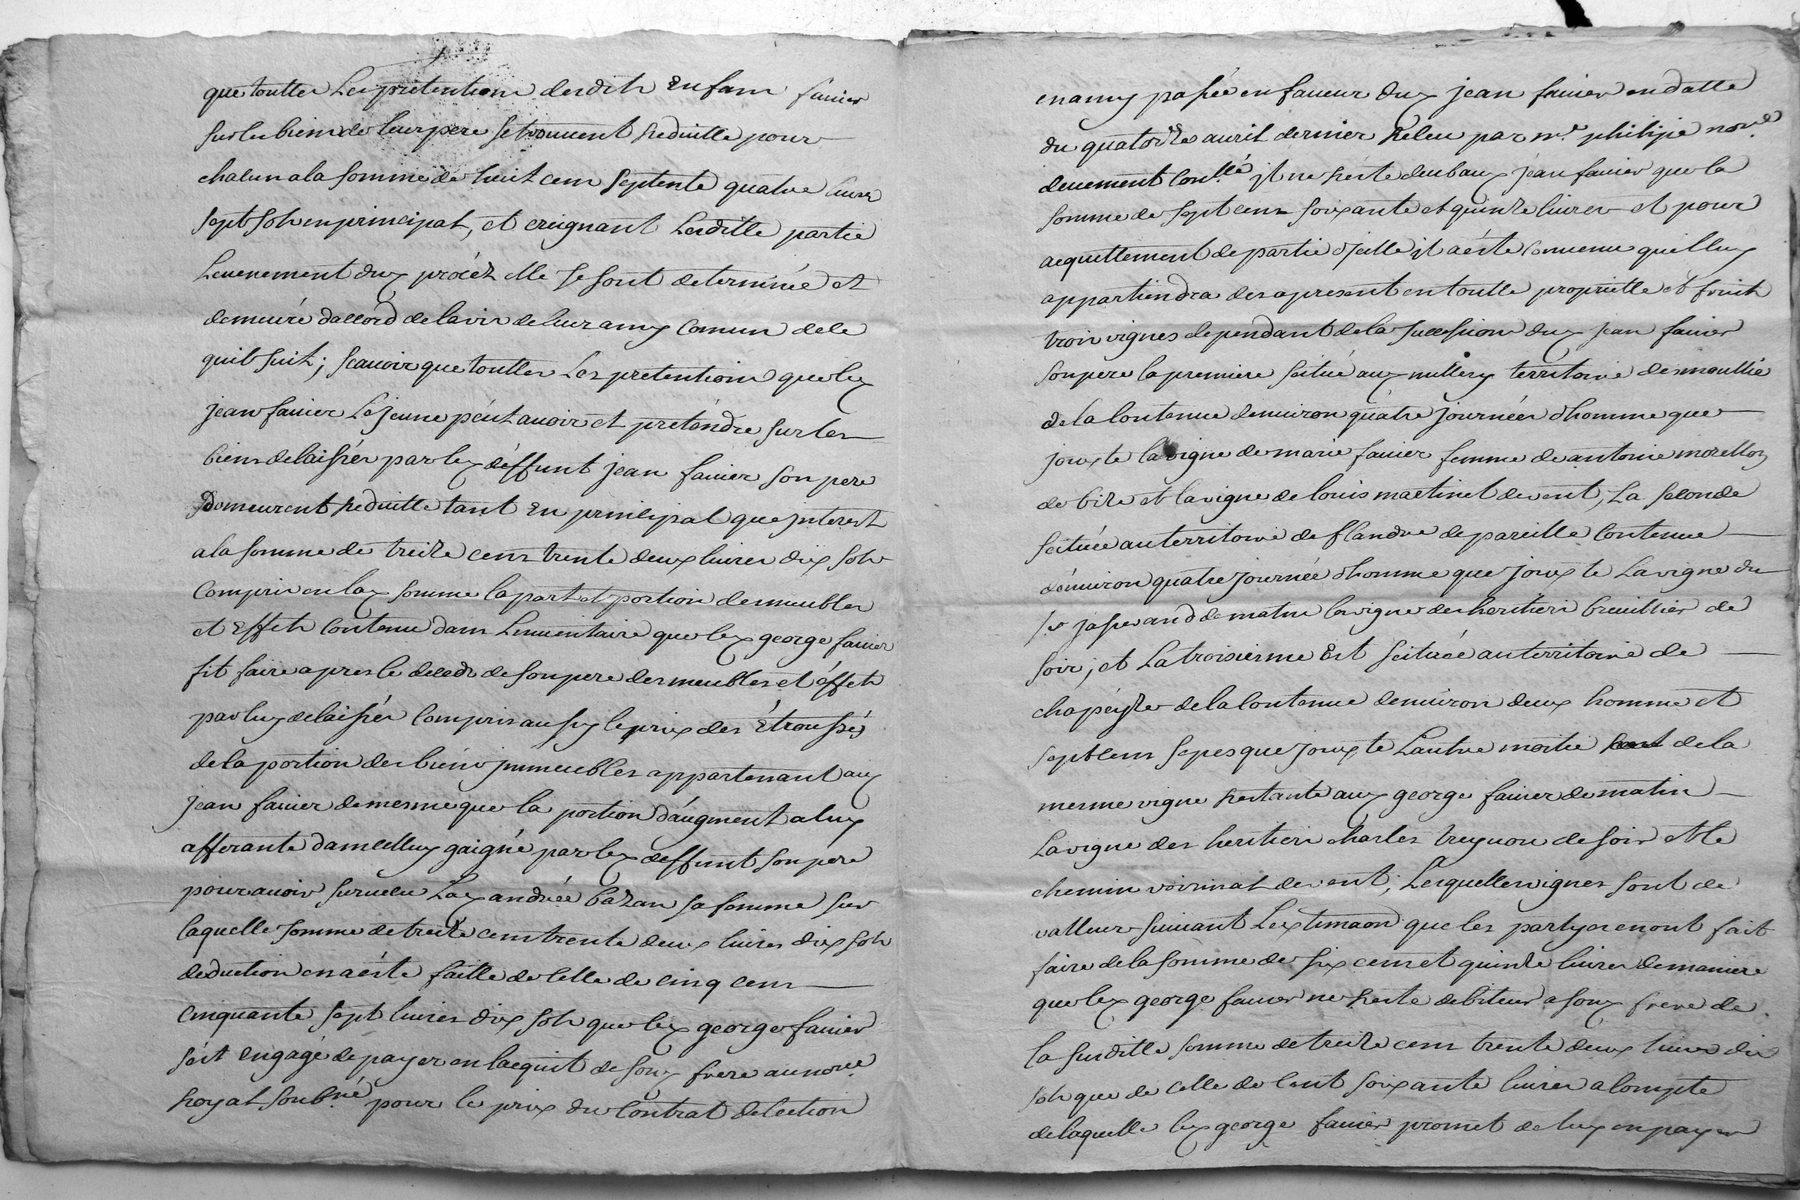 que touttes Les pretentions desdits Enfans favier
sur les biens de leur pere se trouvent Reduitte pour
chacun a la somme de huit cens septente quatre livres
sept sols en principal, et creignant Lesditte partie
Levenement dux procéz elle se sont determinée et
demeuré daccord de lavis de leurs amys comun de ce
quil suit; scauoir que touttes Les pretentions que lex
jean favier Le jeune peut auoir et pretendre sur les
biens delaissés par lex deffunt jean favier son pere
Demeurent Reduitte tant En principal que jnterest
a la somme de treize cens trente deux livres dix sols
Compris en lax somme la part et portion des meubles
et Effets contenu dans Linuentaire que lex george favier
fit faire apres le deceds de son pere des meubles et éffets
par luy delaissés Compris aussy le prix des Etrousses
de la portion des biens jmmeubles appartenant aux
jean favier de mesme que la portion daugment a luy
afferante dans celluy gaigné par lex deffunt son pere
pour auoir suruecu Lax andréé bazan sa femme sur
laquelle somme de treize cens trente deux livres dix sols
deduction en a éste faitte de celle de cinq cens
cinquante sept livres dix sols que lex george favier
sest engagé de payer en lacquit de sonx frere au nore
Royal soubné pour le prix du contrat delection
en amy passée en faueur dux jean favier en datte
du quatorze auril dernier Receu par mr philipe nore
deuement conllé jl ne reste deub aux jean favier que la
somme de sept cens soixante et quinze livres et pour
acquittement de partie djcelle jl a éste conuenu quil luy
appartiendra des apresent en toutte proprieté et fruits
trois vignes dependant de la succession dux jean favier
son pere la premiere scitué aux millery territoire des moullie
de la contenue denuiron quatre journées dhomme que
jouxte la vigne de marie favier femme de antoine morellon
de bize et la vigne de louis martinet de vent, La seconde
scituée au territoire de flandre de pareille contenue
denuiron quatre journée dhomme que jouxte La vigne du
sr jasserand de matin la vigne des heritiers breuillier de
soir; et La troisiesme Est scituée au territoire de
chapéyse de la contenue denuiron deux homme et
sept cens sepes que jouxte Lautre moitie de la
mesme vigne restante aux george favier de matin
La vigne des heritiers charles treynou de soir et le
chemin voirinal de vent; Lesquelles vignes sont de
valleur suiuant Lextimaon que les partyes en ont fait
faire de la somme de six cens et quinze livres de maniere
que lex george favier ne Reste debiteur a sonx frere de
la susditte somme de treize cens trente deux livres dix
sols que de celle de cent soixante livres a compte
de laquelle lex george favier promet de luy en payer